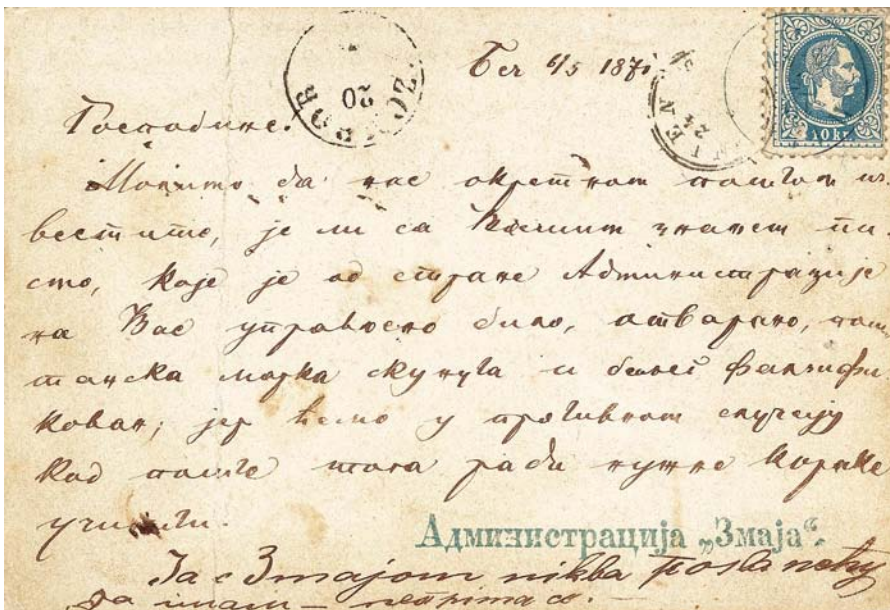 Беч 6/5 1871
WIEN
10 kr
20
Господине!
Молимо да нас окретном поштом из-
вестите, је ли са Вашим знањем пи-
смо, које је од стране Администрације
на Вас управљено било, отварано, пош-
танска марка скунута и белег фалзифи-
кован; јер ћемо у противном случају
код поште тога ради нужне кораке
учинити.
Администрација „Змаја“.
Ја с Змајом никва посла нећу
да имам —